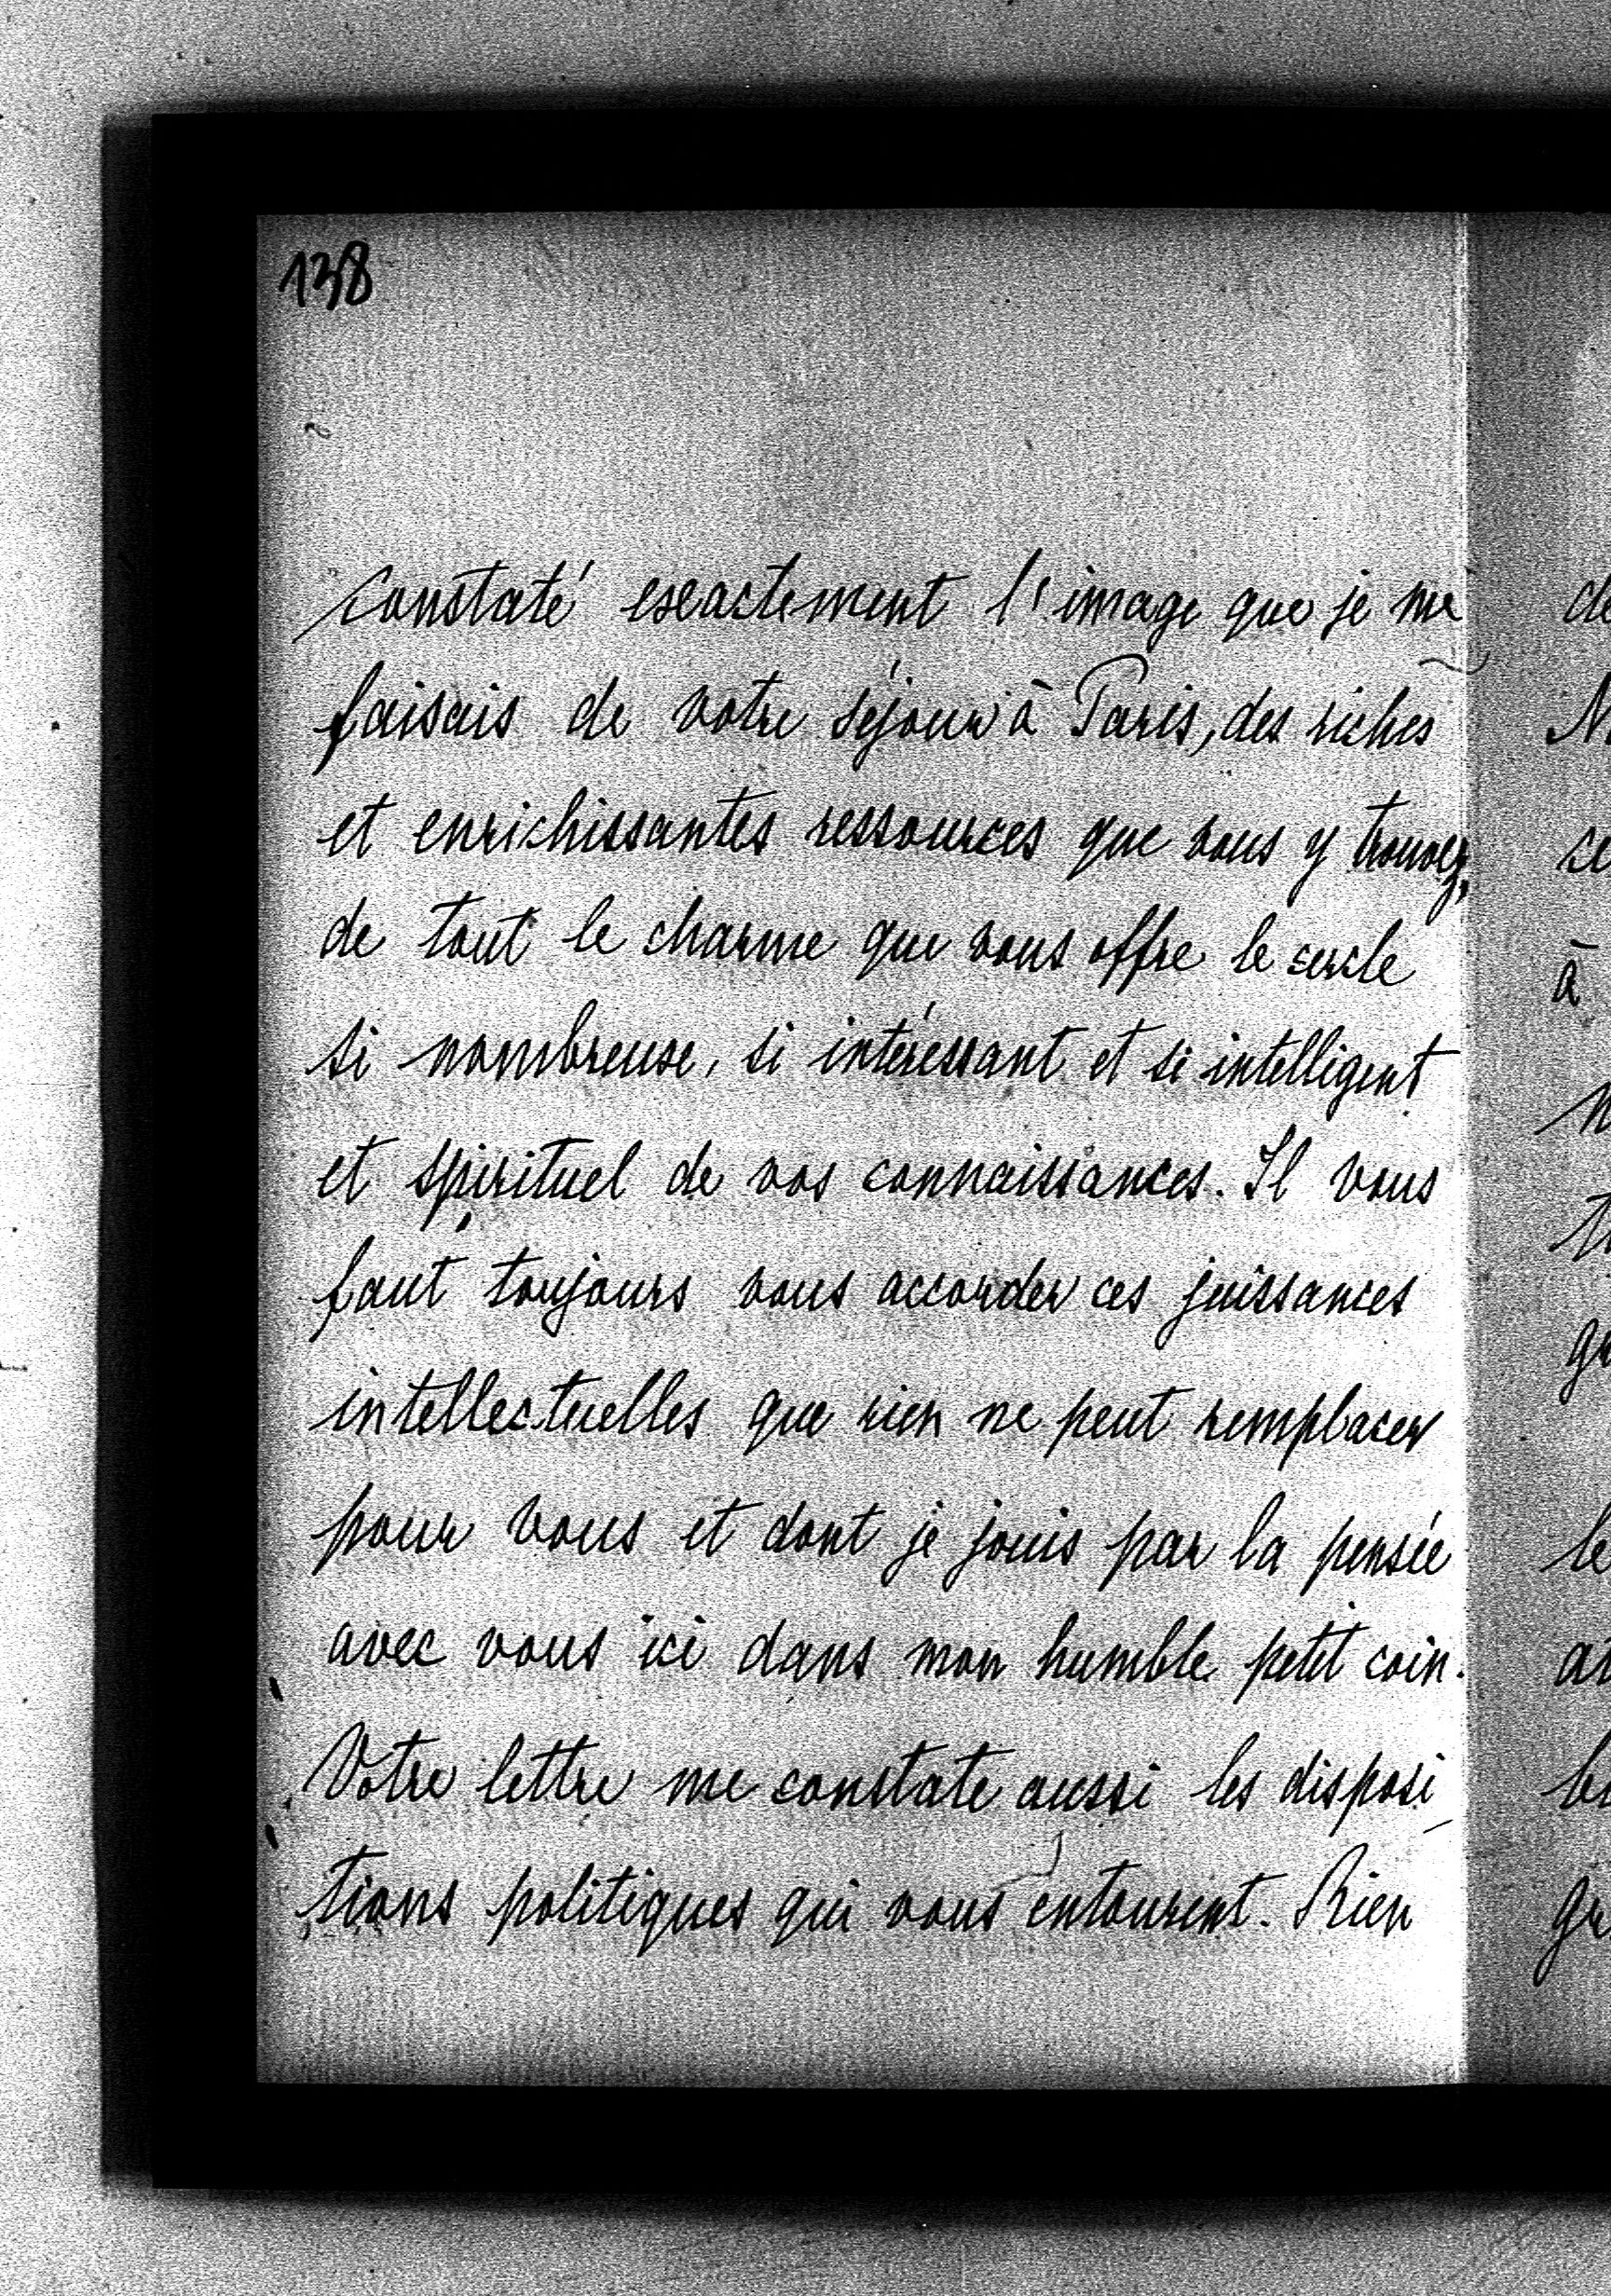 138
constaté exactement l'image que je me
faisais de votre séjour à Paris, des riches
et enrichissantes ressources que vous y trouvez,
de tout le charme que vous offre le cercle
si nombreuse, si intéressant et si intelligent
et spirituel de vos connaissances. Il vous
faut toujours vous accorder ces juissances
intellectuelles que rien ne peut remplacer
pour vous et dont je jouis par la pensée
avec vous ici dans mon humble petit coin.
Votre lettre me constate aussi les disposi
tions politiques qui vous entourent. Rien